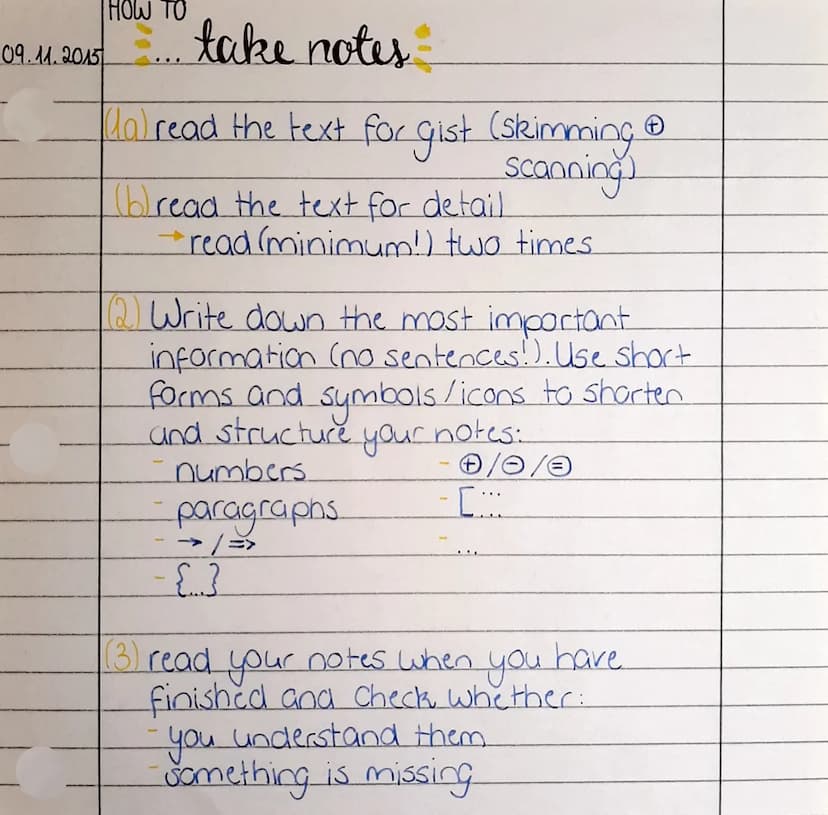 HOW TO
09.11.2015 ... take notes
(1a) read the text for gist (skimming ⊕
scanning)
(b) read the text for detail
→ read (minimum!) two times
(2) Write down the most important
information (no sentences!). Use short
forms and symbols/icons to shorten
and structure your notes:
- numbers - ⊕/⊖/⊜
- paragraphs - [:...
- → / => - ...
- {...}
(3) read your notes when you have
finished and check whether:
- you understand them
- something is missing